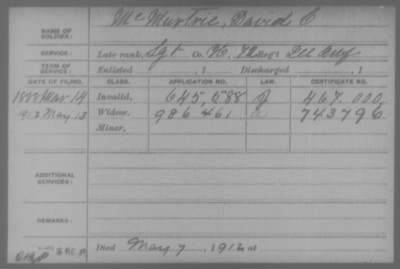 McMurtrie, David C
NAME OF SOLDIER:
SERVICE: Late rank, Sgt Co. H, 72 Reg't Ill Inf
TERM OF SERVICE: Enlisted , 1 Discharged , 1
DATE OF FILING. CLASS. APPLICATION NO. LAW. CERTIFICATE NO.
1888 Mar 14 Invalid, 645,588 467.000
1912 May 13 Widow, 986 461 743796
Minor,
ADDITIONAL SERVICES:
REMARKS:
Died May 7, 1912 at